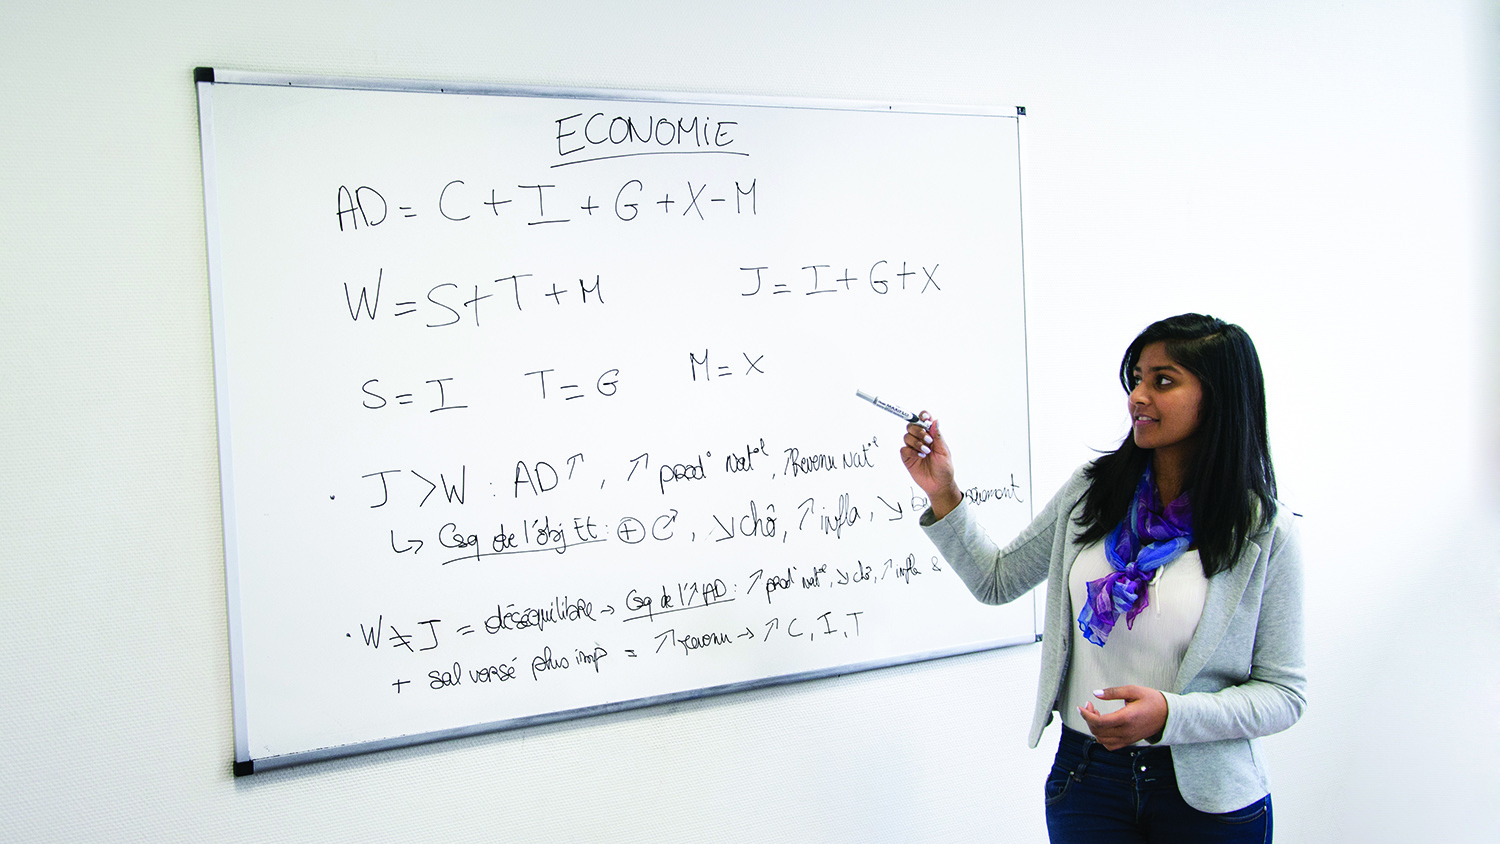 ECONOMIE
AD = C + I + G + X - M
W = S + T + M J = I + G + X
S = I T = G M = X
. J > W : AD ↗, ↗ prod° Nat^el, ↗ Revenu Nat^el
↳ Csq de l'obj Et : ⊕ C↗, ↘ chô, ↗ infla, ↘
. W ≠ J = déséquilibre → Csq de l'↗ AD : ↗ prod° nat^el, ↘ chô, ↗ infla &
+ sal versé plus imp = ↗ revenu → ↗ C, I, T